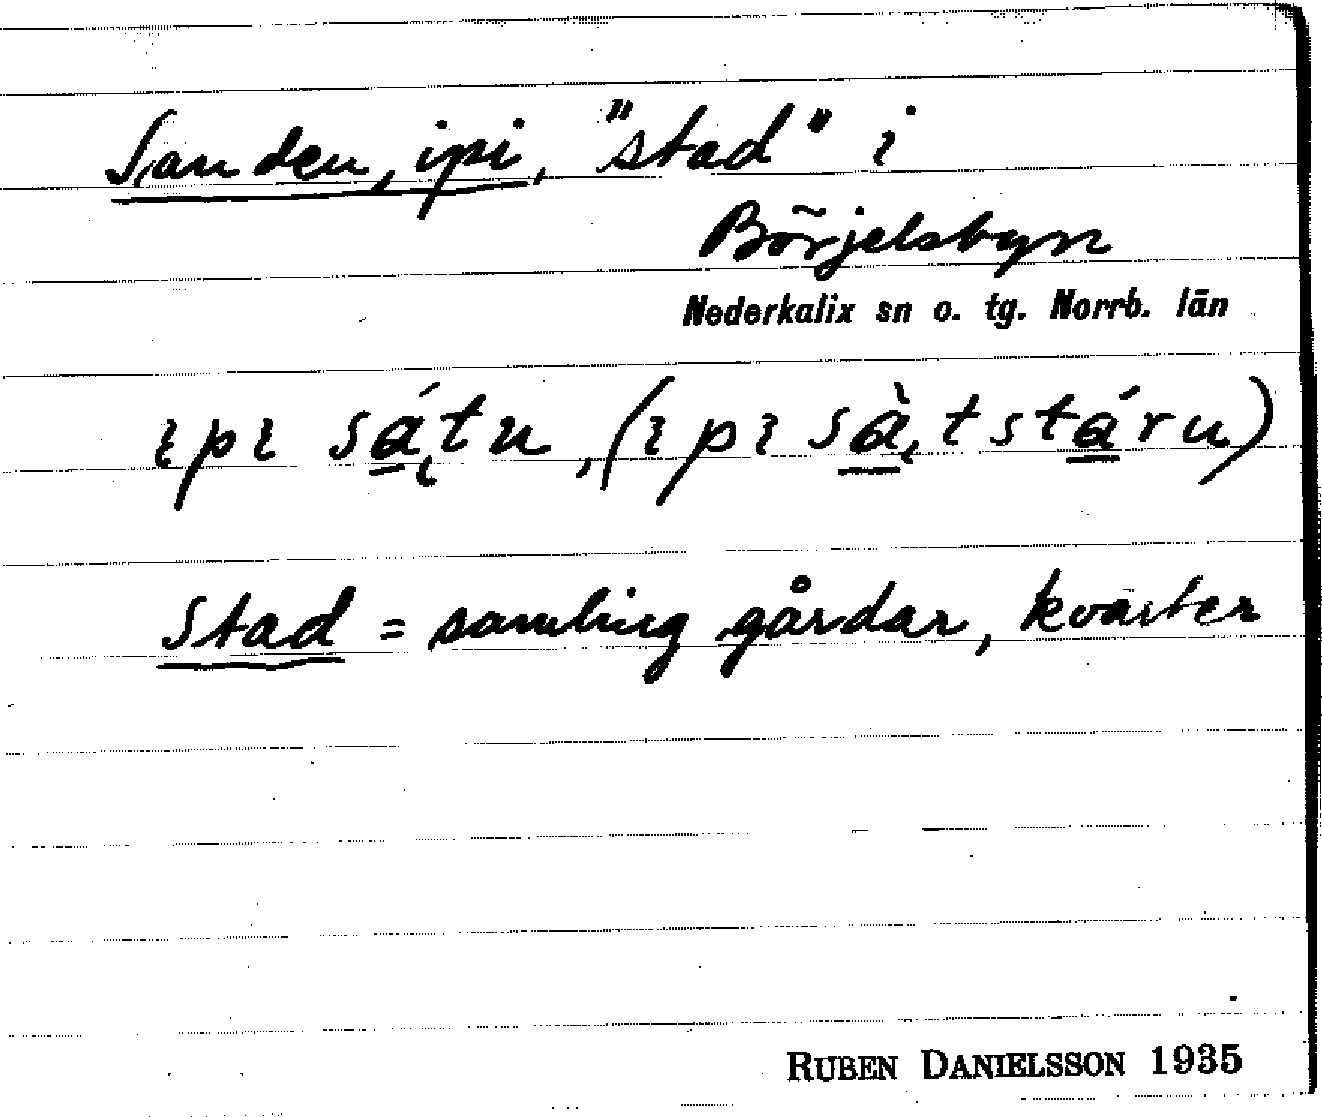 Sanden, ipi, "stad" i
Börjelsbyn
Nederkalix sn o. tg. Norrb. län
ıpı sátu, (ıpı sàtstáru)
Stad = samling gårdar, kvarter
RUBEN DANIELSSON 1935